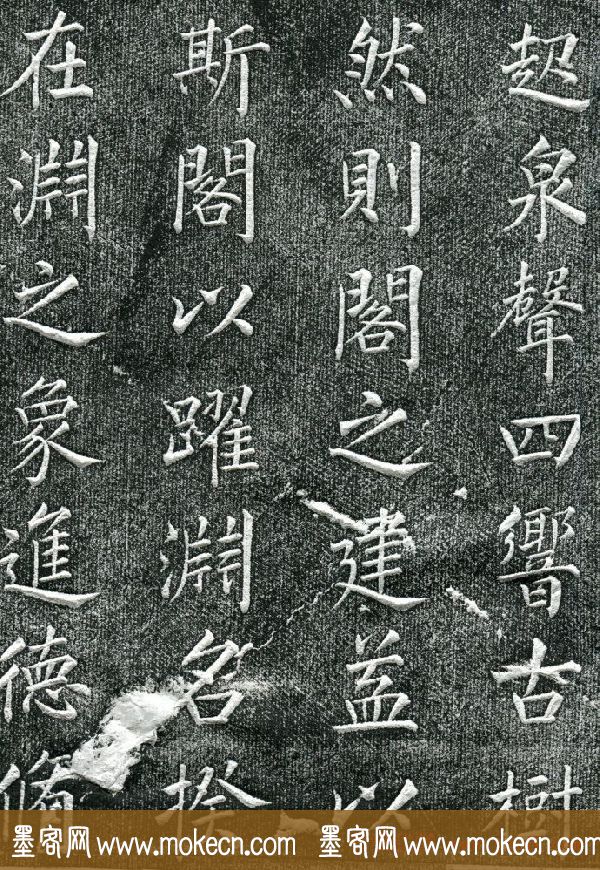 起泉聲四響古樹
然則閣之建益以
斯閣以躍淵名揆
在淵之象進德脩
墨客网 www.mokecn.com 墨客网 www.mokecn.com